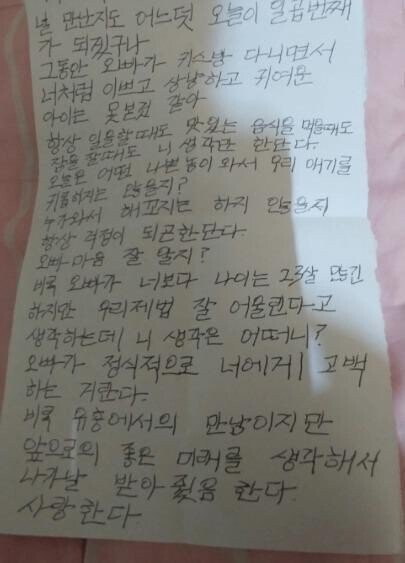 널 만난지도 어느덧 오늘이 일곱번째
가 되겠구나
그동안 오빠가 키스방 다니면서
너처럼 이쁘고 상냥하고 귀여운
아이는 못본것 같아
항상 일을할때도 맛있는 음식을 먹을때도
잠을 잘때도 니 생각만 한단다.
오늘은 어떤 나쁜놈이 와서 우리 애기를
않을지?
누가와서 해꼬지는 하지 않을지
항상 걱정이 되곤한단다.
오빠 마음 잘 알지?
비록 오빠가 너보다 나이는 23살 많긴
하지만 우리제법 잘 어울린다고
생각하는데 니 생각은 어떠니?
오빠가 정식적으로 너에게 고백
하는 거란다.
비록 유흥에서의 만남이지만
앞으로의 좋은 미래를 생각해서
나가날 받아 줬음 한다
사랑한다